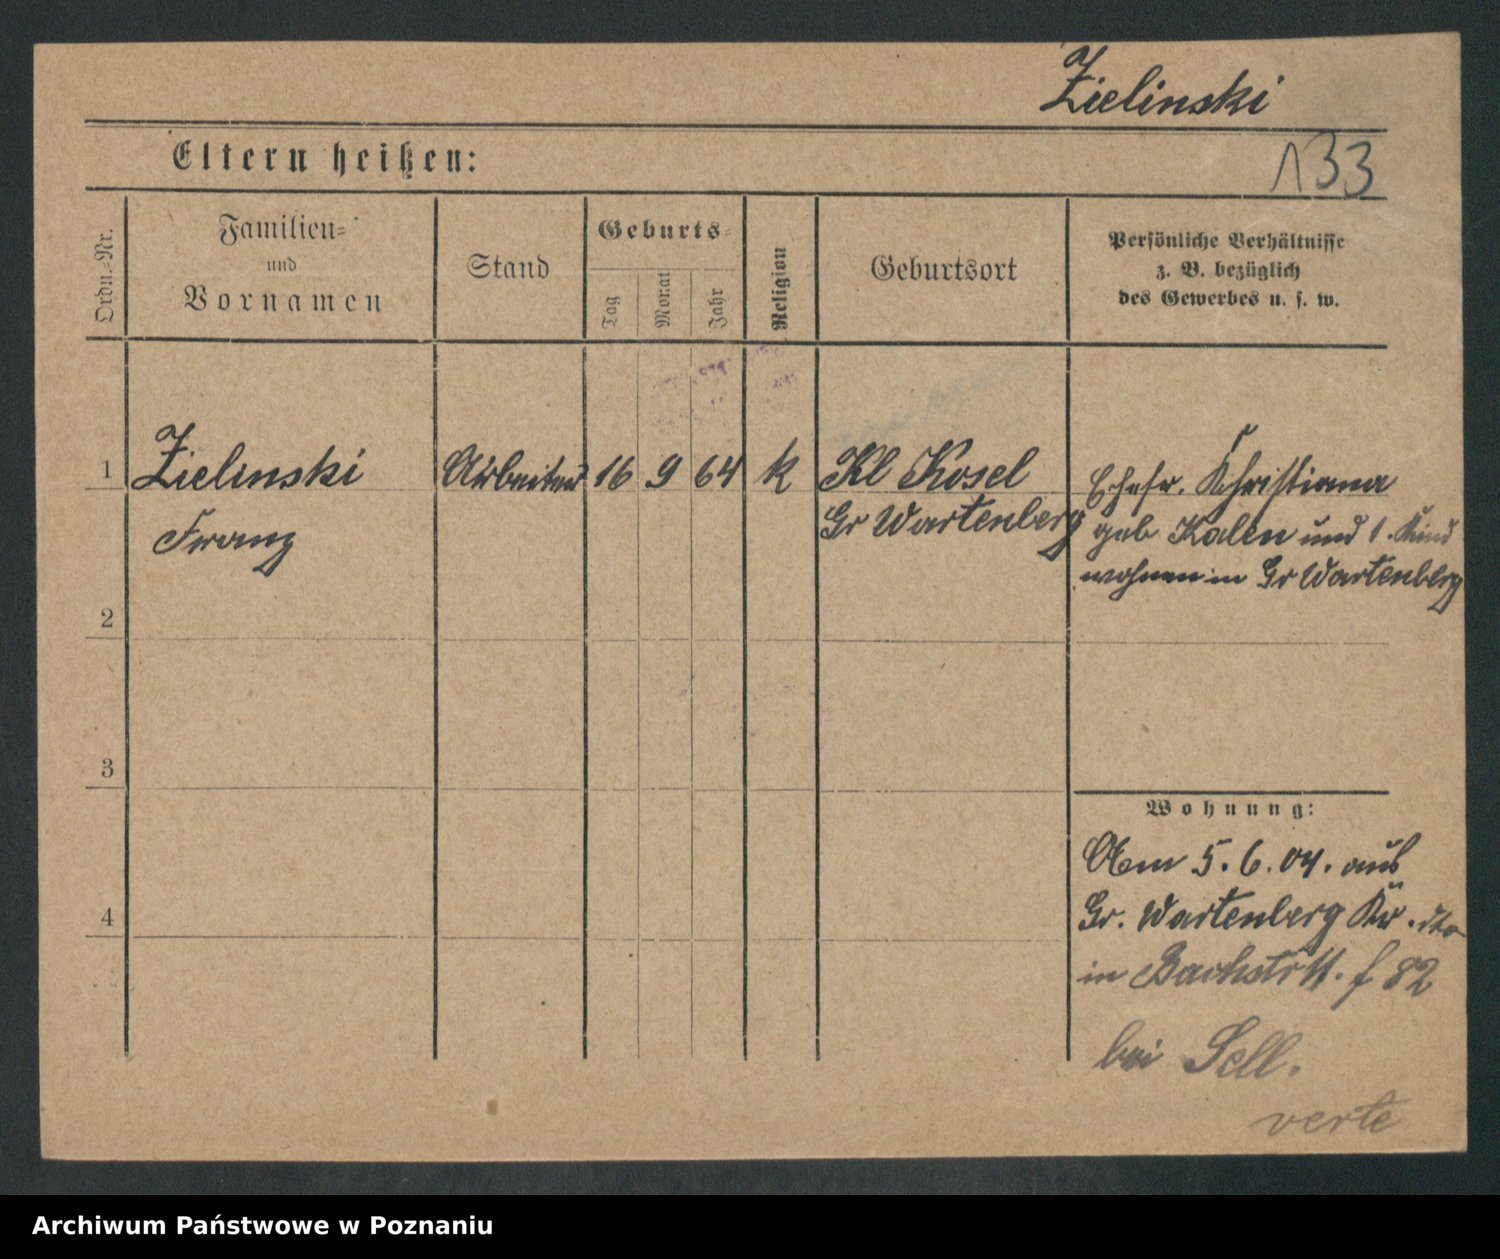 Zielinski
Eltern heißen:
133
Ordn.-Nr.
Familien-
und
Vornamen
Stand
Geburts-
Tag
Monat
Jahr
Religion
Geburtsort
Persönliche Verhältnisse
z. B. bezüglich
des Gewerbes u. s. w.
1
Zielinski
Arbeiter
16
9
64
k
Kl Kosel
Gr Wartenberg
Franz
Ehefr. Christiana
geb Kalen und 1. Kind
wohnen in Gr Wartenberg
2
3
4
Wohnung:
Am 5. 6. 04. aus
Gr. Wartenberg Kr. dto
in Bachstr 11. f 82
bei Sell.
verte
Archiwum Państwowe w Poznaniu